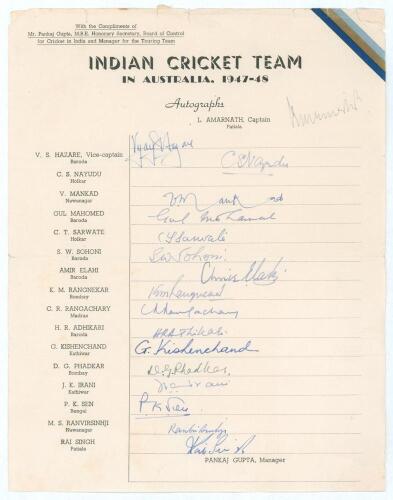 With the Compliments of
Mr. Pankaj Gupta, M.B.E. Honorary Secretary, Board of Control
for Cricket in India and Manager for the Touring Team
INDIAN CRICKET TEAM
IN AUSTRALIA, 1947-48
Autographs
L. AMARNATH, Captain
Patiala
V. S. HAZARE, Vice-captain
Baroda
Vijay Hazare
C. S. NAYUDU
Holkar
C S Nayudu
V. MANKAD
Nawanagar
GUL MAHOMED
Baroda
Gul Mohamed
C. T. SARWATE
Holkar
CTSarwate
S. W. SOHONI
Baroda
S.W. Sohoni
AMIR ELAHI
Baroda
K. M. RANGNEKAR
Bombay
C. R. RANGACHARY
Madras
H. R. ADHIKARI
Baroda
HRAdhikari
G. KISHENCHAND
Kathiwar
G. Kishenchand
D. G. PHADKAR
Bombay
D.G. Phadkar
J. K. IRANI
Kathiwar
P. K. SEN
Bengal
P. K Sen
M. S. RANVIRSINHJI
Nawanagar
Ranvirsinhji
RAI SINGH
Patiala
Rai Singh
PANKAJ GUPTA, Manager